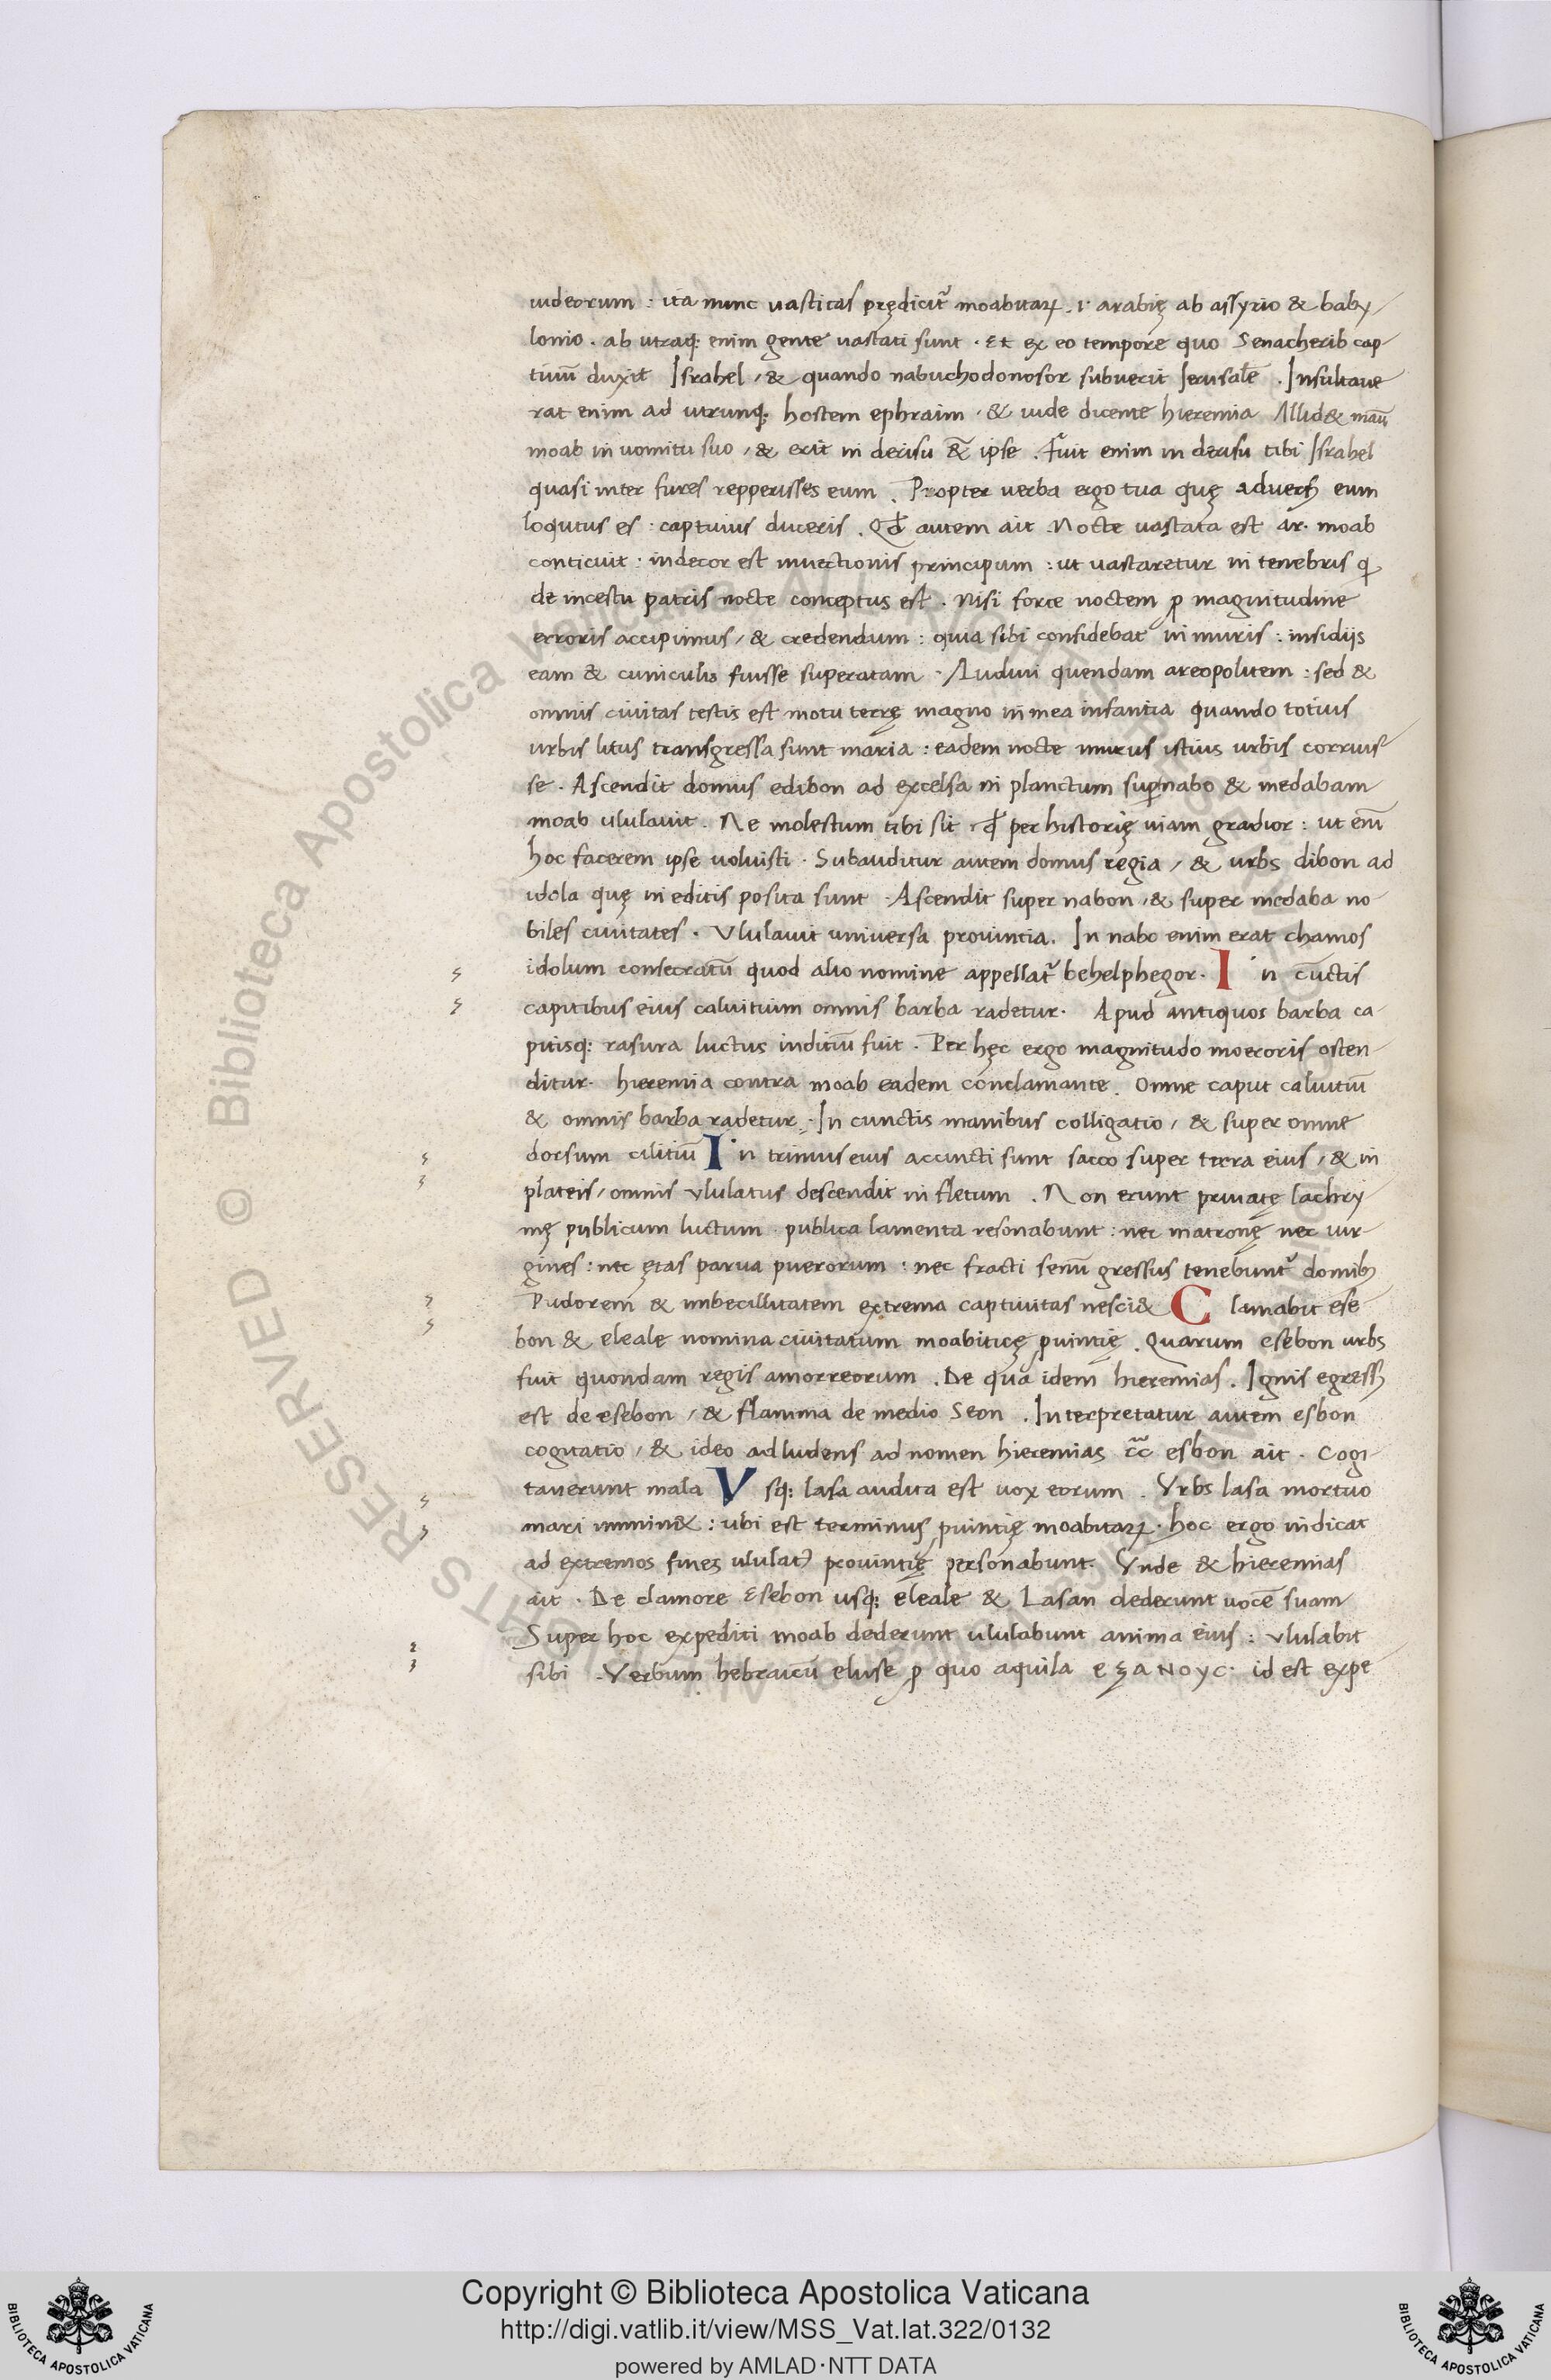 iudeorum : ita nunc uastitas prędicit᷑ moabitaꝝ . i· arabię ab assyrio & baby
lonio . ab utraq; enim gente uastati sunt . Et ex eo tempore quo Senacherib cap
tiuū duxit Israhel , & quando nabuchodonosor subuertit Ierusalē . Insultaue
rat enim ad utrunq; hostem ephraim , & iude dicente hieremia Allid& manū
moab in uomitu suo , & erit in derisu &̄ ipse . Fuit enim in derisu tibi Israhel
quasi inter fures repperisses eum . Propter uerba ergo tua quę aduersꝰ eum
loqutus es : captiuus duceris . Qđ autem ait Nocte uastata est ar. moab
conticuit : indecor est inuectionis principum : ut uastaretur in tenebris q
de incestu patris nocte conceptus est . Nisi forte noctem ꝓ magnitudine
erroris accipimus , & credendum : quia sibi confidebat in muris : insidijs
eam & cuniculis fuisse superatam . Audiui quendam areopolitem : sed &
omnis ciuitas testis est motu terrę magno in mea infantia quando totius
urbis litus transgressa sunt maria : eadem nocte murus istius urbis corruis
se . Ascendit domus edibon ad excelsa in planctum sup nabo & medabam
moab ululauit . Ne molestum tibi sit , qđ per historię uiam gradior : ut enī
hoc facerem ipse uoluisti . Subauditur autem domus regia , & urbs dibon ad
idola quę in editis posita sunt . Ascendit super nabon , & super medaba no
biles ciuitates . Vlulauit uniuersa prouintia . In nabo enim erat chamos
idolum consecratū quod alio nomine appellat᷑ behelphegor . I n cūctis
capitibus eius caluitium omnis barba radetur . Apud antiquos barba ca
pitisq; rasura luctus inditiū fuit . Per hęc ergo magnitudo moeroris osten
ditur . hieremia contra moab eadem conclamante . Omne caput caluitiū
& omnis barba radetur . In cunctis manibus colligatio , & super omne
dorsum cilitiū I n triuius eius accincti sunt sacco super terra eius , & in
plateis , omnis vlulatus descendit in fletum . Non erunt priuatę lachry
mę publicum luctum publica lamenta resonabunt : nec matronę nec uir
gines : nec ętas parua puerorum : nec fracti senū gressus tenebunt᷑ domibꝰ
Pudorem & imbecillitatem extrema captiuitas nesci& C lamabit ese
bon & eleale nomina ciuitatum moabiticę ꝓuintię . Quarum esebon urbs
fuit quondam regis amorreorum . De qua idem hieremias . Ignis egressꝰ
est de esebon , & flamma de medio Seon . Interpretatur autem esbon
cogitatio , & ideo adludens ad nomen hieremias cc̄ esbon ait . Cogi
tauerunt mala V sq; Iasa audita est uox eorum . Vrbs Iasa mortuo
mari immin& : ubi est terminus ꝓuintię moabitaꝝ . hoc ergo indicat
ad extremos fines ululatꝰ prouintię personabunt . Vnde & hieremias
ait . De clamore Esebon usq; eleale & Lasan dederunt uocē suam
Super hoc expediti moab dederunt ululabunt anima eius : vlulabit
sibi . Verbum hebraicū eluse ꝓ quo aquila εξανουc . id est expe
Copyright © Biblioteca Apostolica Vaticana
http://digi.vatlib.it/view/MSS_Vat.lat.322/0132
powered by AMLAD·NTT DATA